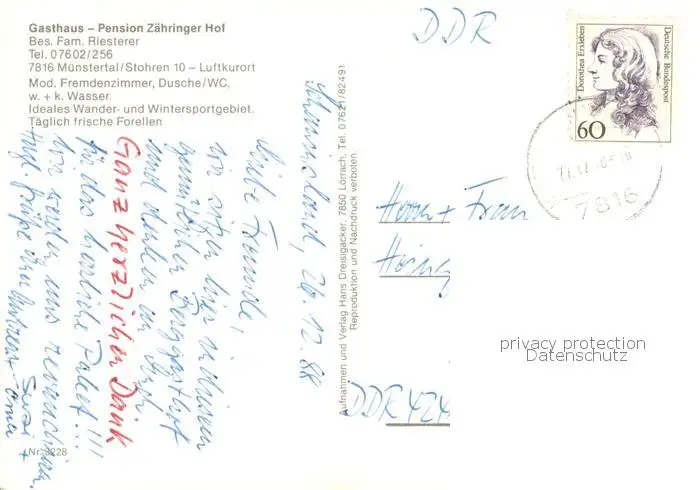 Gasthaus – Pension Zähringer Hof
Bes. Fam. Riesterer
Tel. 07602/256
7816 Münstertal/Stohren 10 – Luftkurort
Mod. Fremdenzimmer, Dusche/WC,
w. + k. Wasser.
Ideales Wander- und Wintersportgebiet.
Täglich frische Forellen
26.12.88
Liebe Freunde,
wir sitzen hier in diesem
gemütlichen Berggasthof
und denken an Euch.
Ganz herzlichen Dank
für das herrliche Paket!!!
Wir werden uns
Susi +
Nr. 3228
Aufnahmen und Verlag Hans Dreisigacker, 7850 Lörrach, Tel. 07621/82491
Reproduktion und Nachdruck verboten.
DDR
Herrn + Frau
DDR 424
Dorothea Erxleben
Deutsche Bundespost
60
7816
privacy protection
Datenschutz